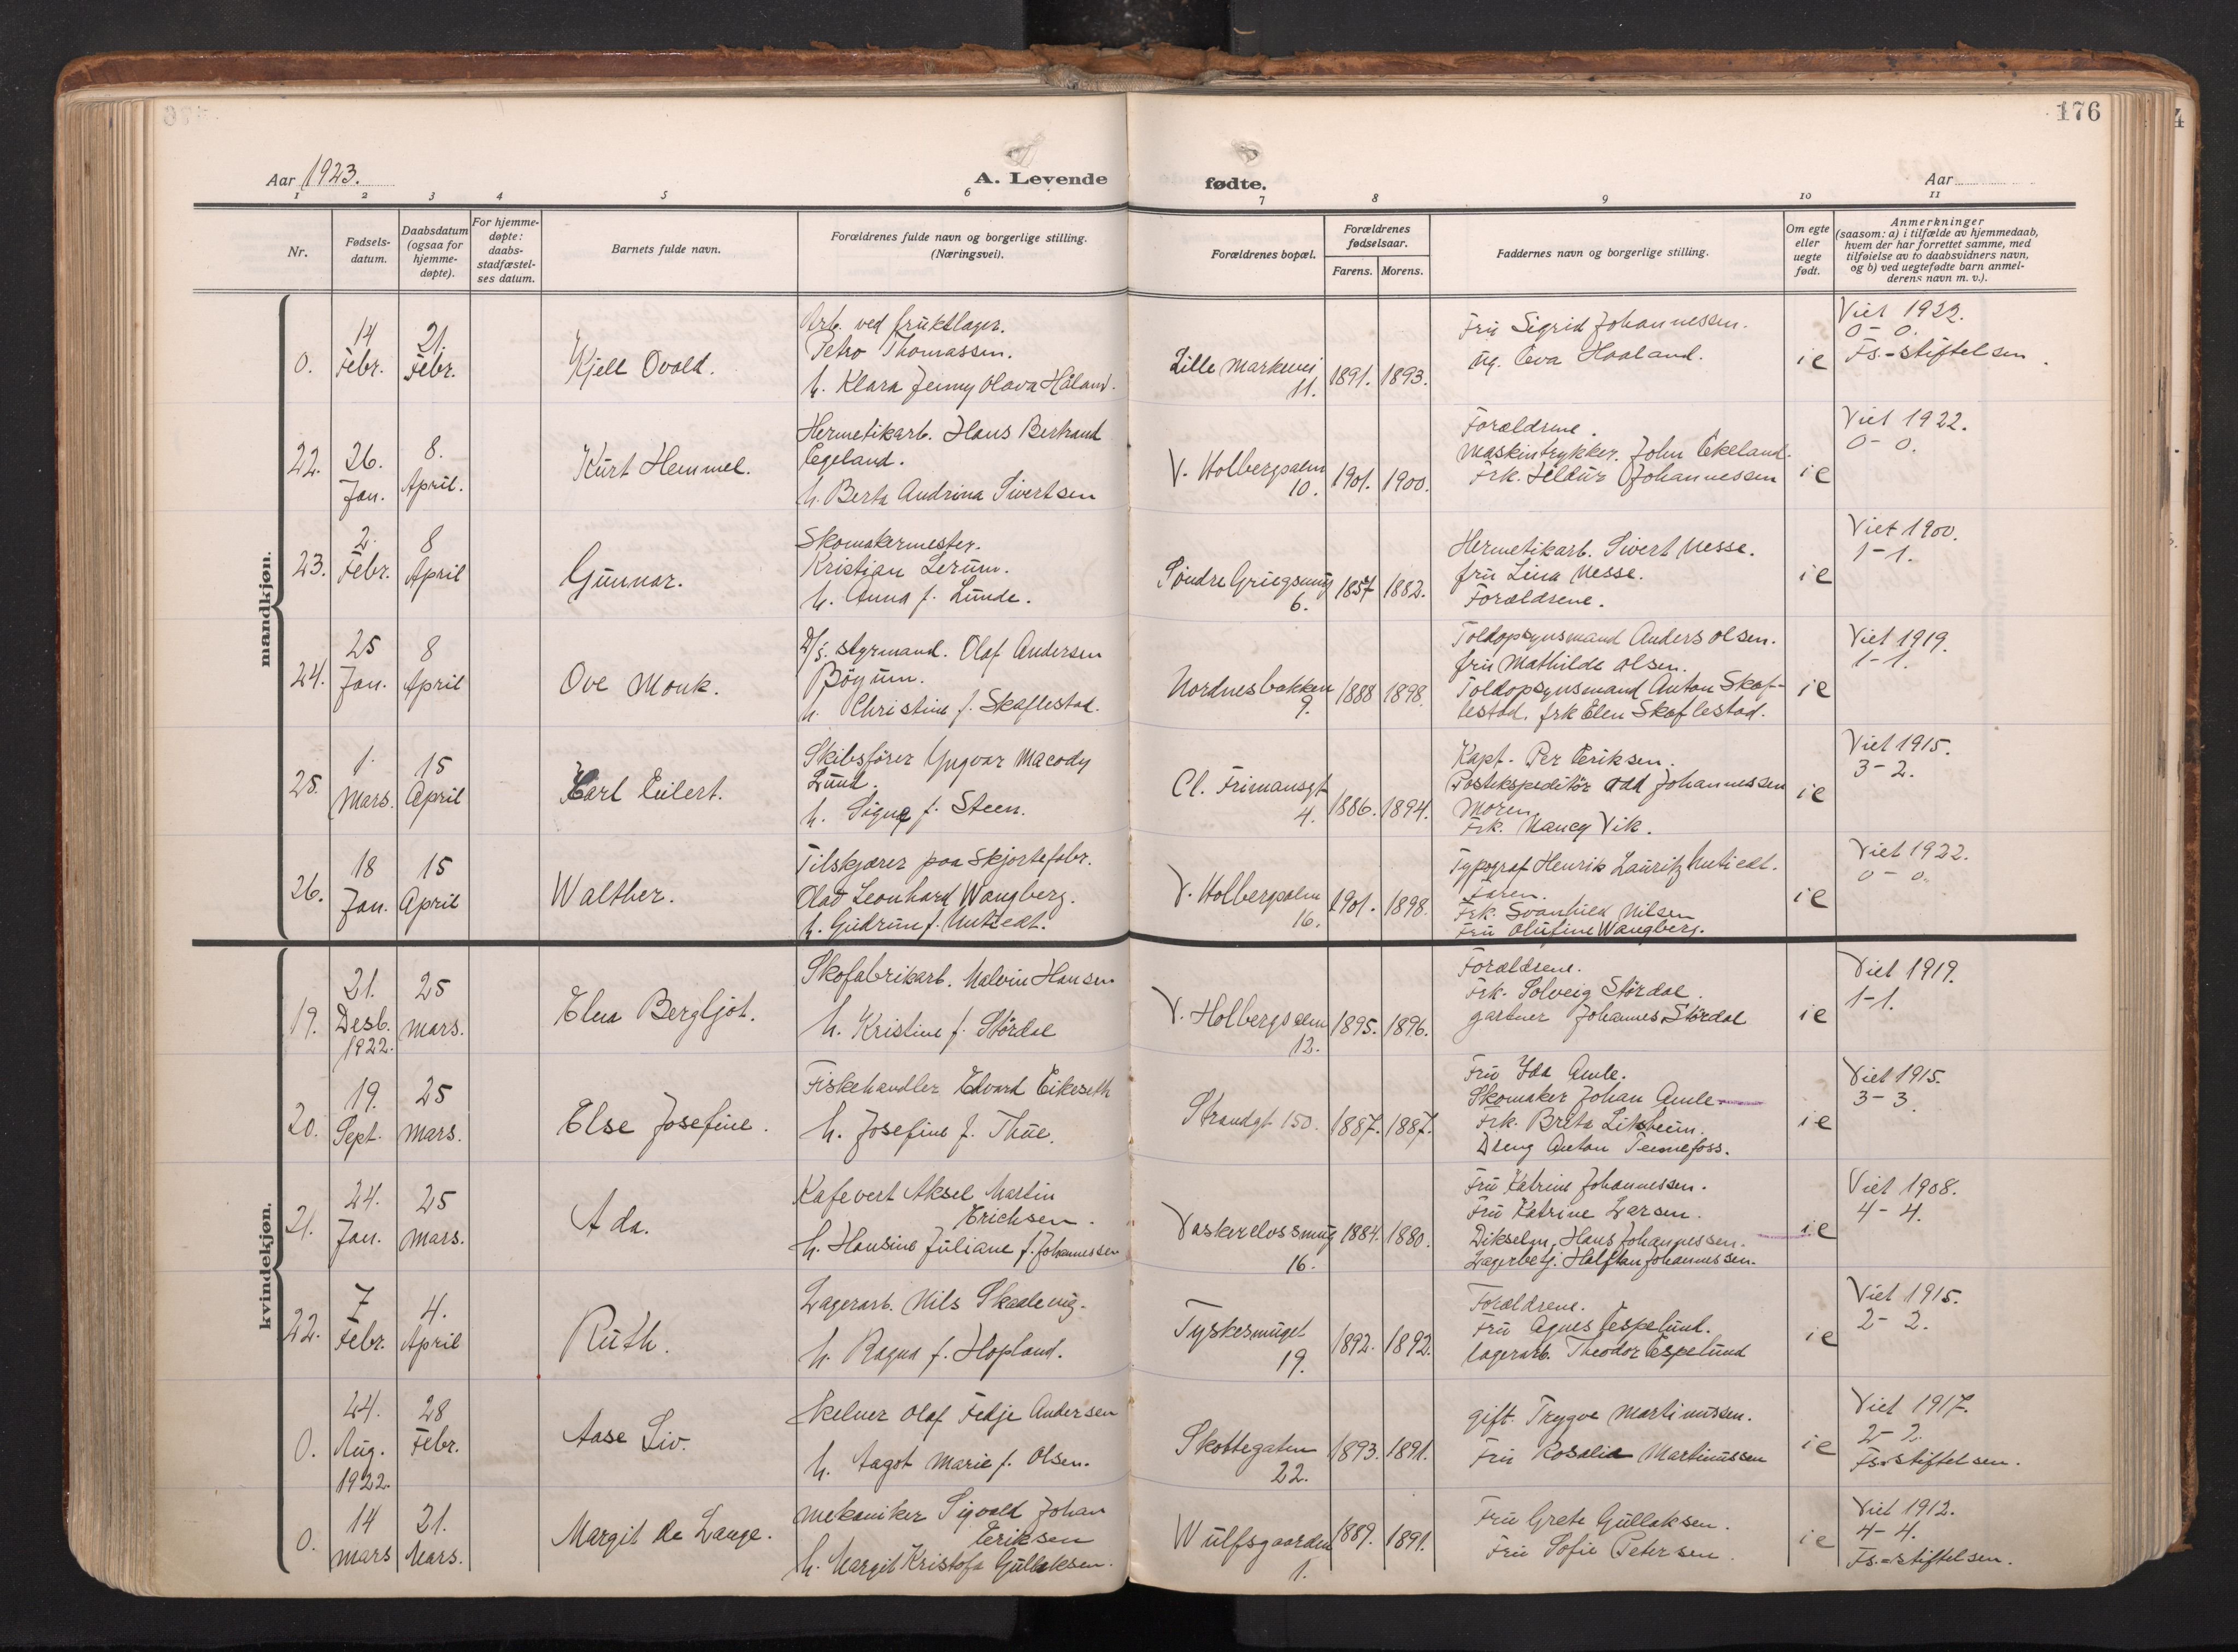 176
Aar 1923.
A. Levende
fødte.
Aar
1 2 3 4 5 6 7 8 9 10 11
Nr.
Fødsels-
datum.
Daabsdatum
(ogsaa for
hjemme-
døpte).
For hjemme-
døpte:
daabs-
stadfæstel-
ses datum.
Barnets fulde navn.
Forældrenes fulde navn og borgerlige stilling.
(Næringsvei).
Forældrenes bopæl.
Forældrenes
fødselsaar.
Farens. Morens.
Faddernes navn og borgerlige stilling.
Om egte
eller
uegte
født.
Anmerkninger
(saasom: a) i tilfælde av hjemmedaab,
hvem der har forrettet samme, med
tilføielse av to daabsvidners navn,
og b) ved uegtefødte barn anmel-
derens navn m. v.).
mandkjøn.
0.
14
Febr.
21.
Febr.
Kjell Ovald.
Arb. ved fruktlager.
Petro Thomassen.
h. Klara Jenny Olava Håland.
Lille Markevei
11.
1891. 1893.
Fru Sigrid Johannessen.
Ug. Eva Haaland.
ie
Viet 1922.
0-0.
Fs.-stiftelsen.
22.
26.
Jan.
8.
April.
Kurt Hemmel.
Hermetikarb. Hans Bertrand
Egeland.
h. Berta Andrina Sivertsen
V. Holbergsalm
10.
1901. 1900.
Forældrene.
Maskintrykker. John Ekeland.
Frk. Hildur Johannessen
ie
Viet 1922.
0-0.
23.
2.
Febr.
8
April
Gunnar.
Skomakermester.
Kristian Lerum.
h. Anna f. Lunde.
Søndre Griegsmug
6.
1857 1882.
Hermetikarb. Sivert Nesse.
fru Lina Nesse.
Forældrene.
ie
Viet 1900.
1-1.
24.
25
Jan.
8
April
Ove Monk.
D/s. styrmand. Olaf Andersen
Bøyum.
h. Christine f. Skaflestad.
Nordnesbakken
9.
1888 1898.
Toldopsynsmand Anders Olsen.
fru Mathilde Olsen.
Toldopsynsmand Anton Skaf-
lestad. frk Elen Skaflestad.
ie
Viet 1919.
1-1.
25.
1.
Mars.
15
April
Karl Eilert.
Skibsfører Yngvar Macody
Lund.
h. Signe f. Steen.
Cl. Frimansgt
4.
1886. 1894.
Kapt. Per Eriksen.
Postekspeditør Odd Johannessen
Moren
Frk. Nancy Vik.
ie
Viet 1915.
3-2.
26.
18
Jan.
15
April
Walther.
Tilskjærer paa skjortefabr.
Olav Leonhard Wangberg.
h. Gudrun f. Nutiedt.
V. Holbergsalm
16.
1901. 1898.
Typograf Henrik Lauritz Nutiedt.
Faren.
Frk. Svanhild Nilsen
Fru Olufine Wangberg.
ie
Viet 1922.
0-0.
kvindekjøn.
19.
21.
Desb.
1922.
25
Mars.
Elna Bergljot.
Skofabrikarb. Malvin Hansen
h. Kristine f. Størdal
V. Holbergsalm
12.
1895. 1896.
Forældrene.
Frk. Solveig Størdal.
gartner Johannes Størdal
ie
Viet 1919.
1-1.
20.
19.
Sept.
25
Mars.
Else Josefine.
Fiskehandler Edvard Eikeseth
h. Josefine f. Thue.
Strandgt 150.
1887. 1887.
Fru Ida Amle.
Skomaker Johan Amle
Frk. Brita Liksheim.
Dreng Anton Tennefoss.
ie
Viet 1915.
3-3.
21.
24.
Jan.
25
Mars.
Ada.
Kafevert Aksel Martin
Erichsen.
h. Hansine Juliane f. Johannessen
Vaskerelvssmug
16.
1884. 1880.
Fru Katrine Johannessen.
Fru Katrine Larsen.
Dikselm. Hans Johannessen.
Lagerbetj. Halftan Johannessen.
ie
Viet 1908.
4-4.
22.
7
Febr.
4.
April
Ruth.
Lagerarb. Nils Skaalevig.
h. Ragna f. Hopland.
Tyskesmuget
19.
1892. 1892.
Forældrene.
Fru Agnes Espelund.
lagerarb. Theodor Espelund
ie
Viet 1915.
2-2.
0.
24.
Aug.
1922.
28
Febr.
Aase Liv.
Kelner Olaf Fedje Andersen
h. Aagot Marie f. Olsen.
Skottegaten
22.
1893. 1891.
gift. Trygve Martinussen.
Fru Rosalia Martinussen
ie
Viet 1917.
2-2.
Fs.-stiftelsen.
0.
14
Mars
21.
Mars.
Margit de Lange.
Mekaniker Sigvald Johan
Eriksen
h. Margit Kristofa Gullaksen.
Wulfsgaarden
1.
1889. 1891.
Fru Grete Gullaksen.
Fru Sofie Petersen.
ie
Viet 1912.
4-4.
Fs.-stiftelsen.